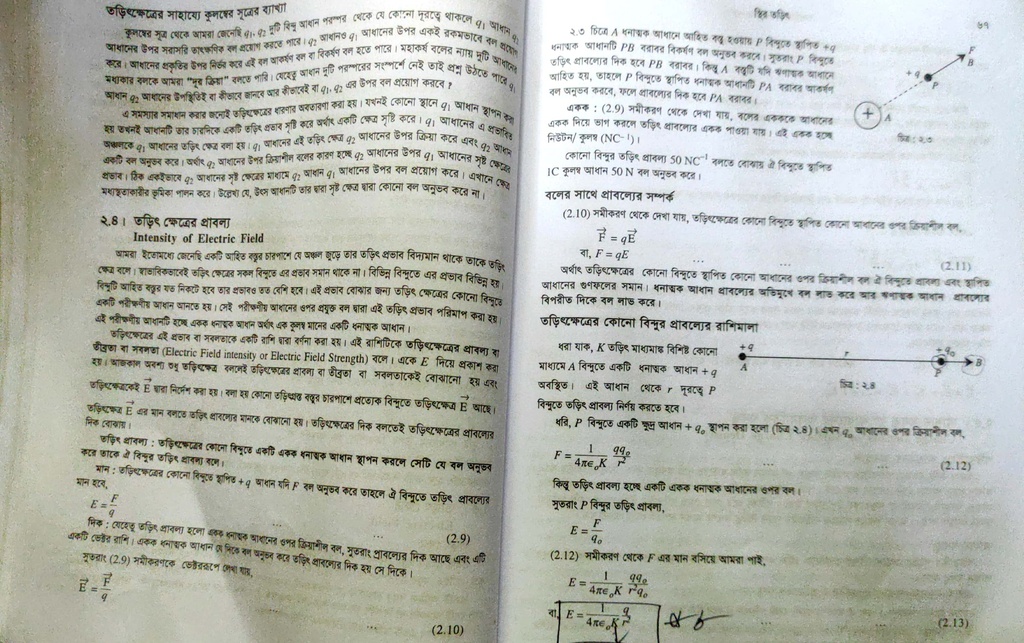 তড়িৎক্ষেত্রের সাহায্যে কুলম্বের সূত্রের ব্যাখ্যা
কুলম্বের সূত্র থেকে আমরা জেনেছি q₁, q₂ দুটি বিন্দু আধান পরস্পর থেকে যে কোনো দূরত্বে থাকলে q₁ আধান q₂
আধানের উপর সরাসরি তাৎক্ষণিক বল প্রয়োগ করতে পারে। q₂ আধানও q₁ আধানের উপর একই রকমভাবে বল প্রয়োগ
করে। আধানের প্রকৃতির উপর নির্ভর করে এই বল আকর্ষণ বল বা বিকর্ষণ বল হতে পারে। মহাকর্ষ বলের ন্যায় দুটি আধানের
মধ্যকার বলকে আমরা "দূর ক্রিয়া" বলতে পারি। যেহেতু আধান দুটি পরস্পরের সংস্পর্শে নেই তাই প্রশ্ন উঠতে পারে q₁
আধান q₂ আধানের উপস্থিতিই বা কীভাবে জানবে আর কীভাবেই বা q₁, q₂ এর উপর বল প্রয়োগ করবে ?
এ সমস্যার সমাধান করার জন্যেই তড়িৎক্ষেত্রের ধারণার অবতারণা করা হয়। যখনই কোনো স্থানে q₁ আধান স্থাপন করা
হয় তখনই আধানটি তার চারদিকে একটি তড়িৎ প্রভাব সৃষ্টি করে অর্থাৎ একটি ক্ষেত্র সৃষ্টি করে। q₁ আধানের এ প্রভাবিত
অঞ্চলকে q₁ আধানের তড়িৎ ক্ষেত্র বলা হয়। q₁ আধানের এই তড়িৎ ক্ষেত্র q₂ আধানের উপর ক্রিয়া করে এবং q₂ আধান
একটি বল অনুভব করে। অর্থাৎ q₂ আধানের উপর ক্রিয়াশীল বলের কারণ হচ্ছে q₂ আধানের উপর q₁ আধানের সৃষ্ট ক্ষেত্রের
প্রভাব। ঠিক একইভাবে q₂ আধানের সৃষ্ট ক্ষেত্রের মাধ্যমে q₂ আধান q₁ আধানের উপর বল প্রয়োগ করে। এখানে ক্ষেত্র
মধ্যস্থতাকারীর ভূমিকা পালন করে। উল্লেখ্য যে, উৎস আধানটি তার দ্বারা সৃষ্ট ক্ষেত্র দ্বারা কোনো বল অনুভব করে না।
২.৪। তড়িৎ ক্ষেত্রের প্রাবল্য
Intensity of Electric Field
আমরা ইতোমধ্যে জেনেছি একটি আহিত বস্তুর চারপাশে যে অঞ্চল জুড়ে তার তড়িৎ প্রভাব বিদ্যমান থাকে তাকে তড়িৎ
ক্ষেত্র বলে। স্বাভাবিকভাবেই তড়িৎ ক্ষেত্রের সকল বিন্দুতে এর প্রভাব সমান থাকে না। বিভিন্ন বিন্দুতে এর প্রভাব বিভিন্ন হয়।
বিন্দুটি আহিত বস্তুর যত নিকটে হবে তার প্রভাবও তত বেশি হবে। এই প্রভাব বোঝার জন্য তড়িৎ ক্ষেত্রের কোনো বিন্দুতে
একটি পরীক্ষণীয় আধান আনতে হয়। সেই পরীক্ষণীয় আধানের ওপর প্রযুক্ত বল দ্বারা এই তড়িৎ প্রভাব পরিমাপ করা হয়।
এই পরীক্ষণীয় আধানটি হচ্ছে একক ধনাত্মক আধান অর্থাৎ এক কুলম্ব মানের একটি ধনাত্মক আধান।
তড়িৎক্ষেত্রের এই প্রভাব বা সবলতাকে একটি রাশি দ্বারা বর্ণনা করা হয়। এই রাশিটিকে তড়িৎক্ষেত্রের প্রাবল্য বা
তীব্রতা বা সবলতা (Electric Field intensity or Electric Field Strength) বলে। একে E দিয়ে প্রকাশ করা
হয়। আজকাল অবশ্য শুধু তড়িৎক্ষেত্র বললেই তড়িৎক্ষেত্রের প্রাবল্য বা তীব্রতা বা সবলতাকেই বোঝানো হয় এবং
তড়িৎক্ষেত্রকেই E⃗ দ্বারা নির্দেশ করা হয়। বলা হয় কোনো তড়িৎগ্রস্ত বস্তুর চারপাশে প্রত্যেক বিন্দুতে তড়িৎক্ষেত্র E⃗ আছে।
তড়িৎক্ষেত্র E⃗ এর মান বলতে তড়িৎ প্রাবল্যের মানকে বোঝানো হয়। তড়িৎক্ষেত্রের দিক বলতেই তড়িৎক্ষেত্রের প্রাবল্যের
দিক বোঝায়।
তড়িৎ প্রাবল্য : তড়িৎক্ষেত্রের কোনো বিন্দুতে একটি একক ধনাত্মক আধান স্থাপন করলে সেটি যে বল অনুভব
করে তাকে ঐ বিন্দুর তড়িৎ প্রাবল্য বলে।
মান : তড়িৎক্ষেত্রের কোনো বিন্দুতে স্থাপিত +q আধান যদি F বল অনুভব করে তাহলে ঐ বিন্দুতে তড়িৎ প্রাবল্যের
মান হবে,
E = F/q ... (2.9)
দিক : যেহেতু তড়িৎ প্রাবল্য হলো একক ধনাত্মক আধানের ওপর ক্রিয়াশীল বল, সুতরাং প্রাবল্যের দিক আছে এবং এটি
একটি ভেক্টর রাশি। একক ধনাত্মক আধান যে দিকে বল অনুভব করে তড়িৎ প্রাবল্যের দিক হয় সে দিকে।
সুতরাং (2.9) সমীকরণকে ভেক্টররূপে লেখা যায়,
E⃗ = F⃗/q ... (2.10)
স্থির তড়িৎ
৬৭
২.৩ চিত্রে A ধনাত্মক আধানে আহিত বস্তু হওয়ায় P বিন্দুতে স্থাপিত +q
ধনাত্মক আধানটি PB বরাবর বিকর্ষণ বল অনুভব করবে। সুতরাং P বিন্দুতে
তড়িৎ প্রাবল্যের দিক হবে PB বরাবর। কিন্তু A বস্তুটি যদি ঋণাত্মক আধানে
আহিত হয়, তাহলে P বিন্দুতে স্থাপিত ধনাত্মক আধানটি PA বরাবর আকর্ষণ
বল অনুভব করবে, ফলে প্রাবল্যের দিক হবে PA বরাবর।
একক : (2.9) সমীকরণ থেকে দেখা যায়, বলের একককে আধানের
একক দিয়ে ভাগ করলে তড়িৎ প্রাবল্যের একক পাওয়া যায়। এই একক হচ্ছে
নিউটন/ কুলম্ব (NC⁻¹)।
F
B
+q
P
+
A
চিত্র : ২.৩
কোনো বিন্দুর তড়িৎ প্রাবল্য 50 NC⁻¹ বলতে বোঝায় ঐ বিন্দুতে স্থাপিত
1C কুলম্ব আধান 50 N বল অনুভব করে।
বলের সাথে প্রাবল্যের সম্পর্ক
(2.10) সমীকরণ থেকে দেখা যায়, তড়িৎক্ষেত্রের কোনো বিন্দুতে স্থাপিত কোনো আধানের ওপর ক্রিয়াশীল বল,
F⃗ = qE⃗
বা, F = qE ... ... ... (2.11)
অর্থাৎ তড়িৎক্ষেত্রের কোনো বিন্দুতে স্থাপিত কোনো আধানের ওপর ক্রিয়াশীল বল ঐ বিন্দুতে প্রাবল্য এবং স্থাপিত
আধানের গুণফলের সমান। ধনাত্মক আধান প্রাবল্যের অভিমুখে বল লাভ করে আর ঋণাত্মক আধান প্রাবল্যের
বিপরীত দিকে বল লাভ করে।
তড়িৎক্ষেত্রের কোনো বিন্দুর প্রাবল্যের রাশিমালা
ধরা যাক, K তড়িৎ মাধ্যমাঙ্ক বিশিষ্ট কোনো
মাধ্যমে A বিন্দুতে একটি ধনাত্মক আধান +q
অবস্থিত। এই আধান থেকে r দূরত্বে P
বিন্দুতে তড়িৎ প্রাবল্য নির্ণয় করতে হবে।
+q
A
r
+q₀
P
B
চিত্র : ২.৪
ধরি, P বিন্দুতে একটি ক্ষুদ্র আধান + q₀ স্থাপন করা হলো (চিত্র ২.৪)। এখন q₀ আধানের ওপর ক্রিয়াশীল বল,
F = 1/4πϵ₀K qq₀/r² ... ... (2.12)
কিন্তু তড়িৎ প্রাবল্য হচ্ছে একটি একক ধনাত্মক আধানের ওপর বল।
সুতরাং P বিন্দুর তড়িৎ প্রাবল্য,
E = F/q₀
(2.12) সমীকরণ থেকে F এর মান বসিয়ে আমরা পাই,
E = 1/4πϵ₀K qq₀/r²q₀
বা, E = 1/4πϵ₀K q/r² ... (2.13)